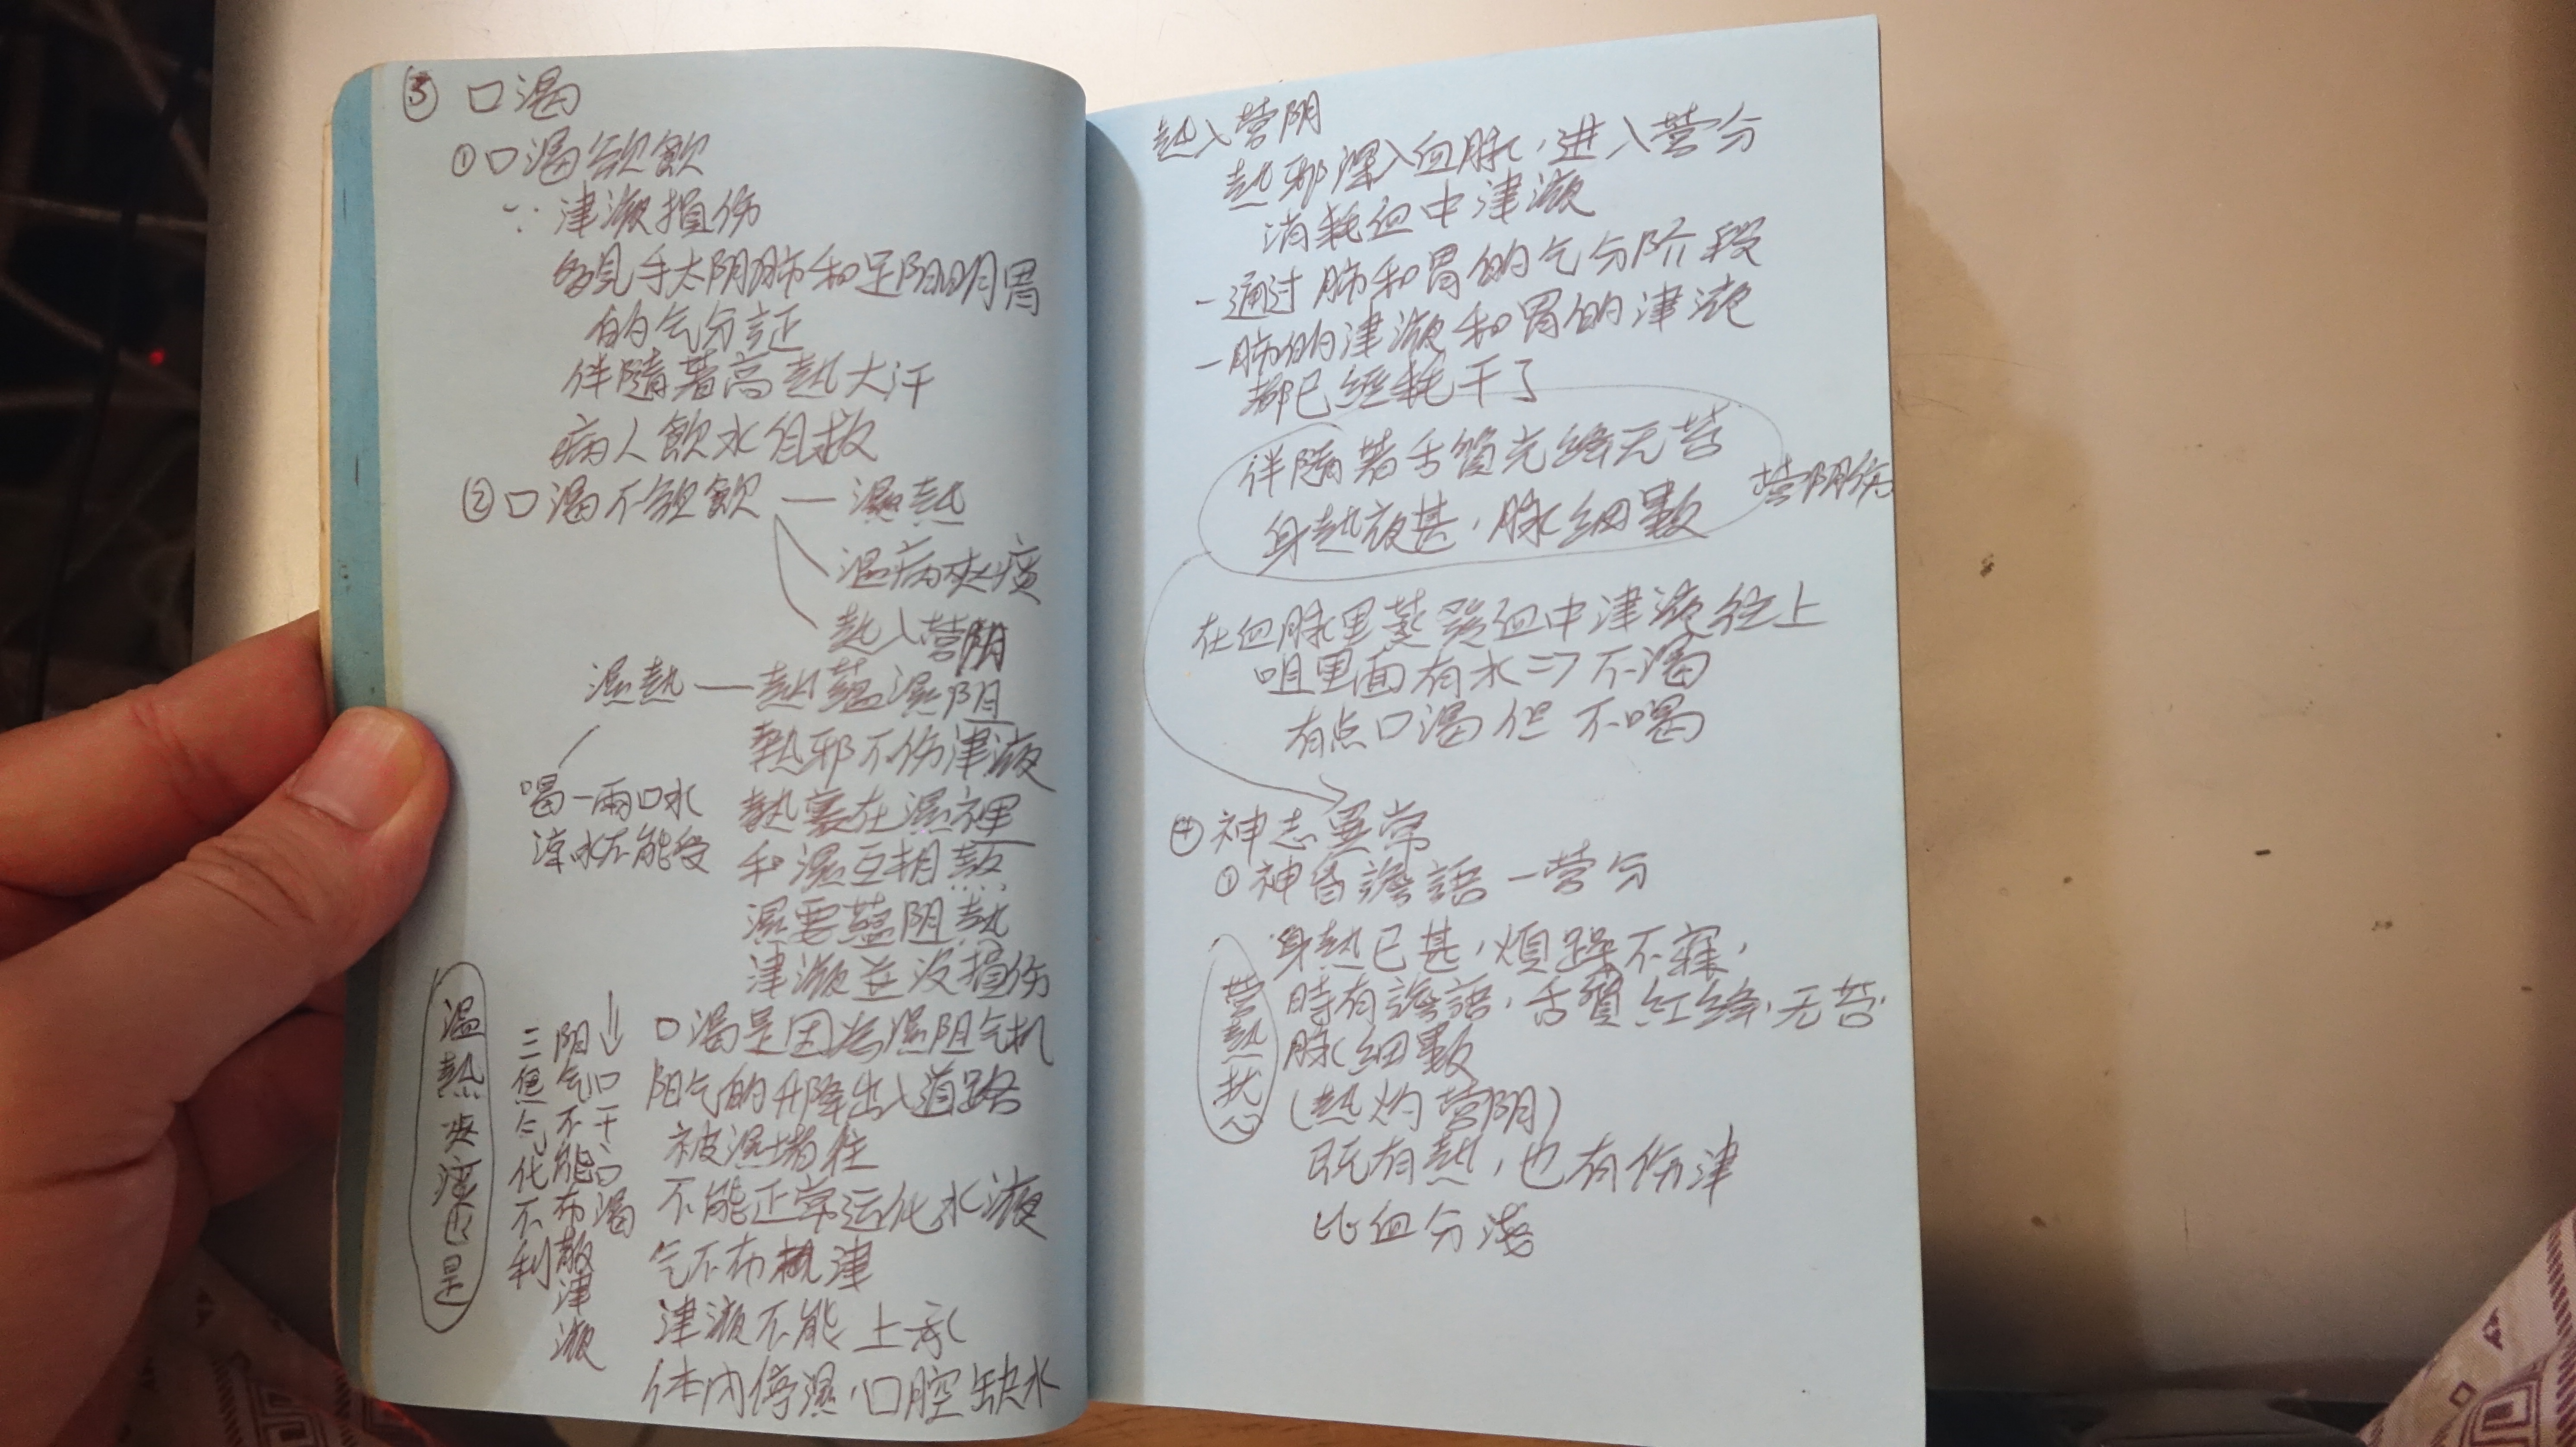 ③ 口渴
① 口渴欲飲
∵ 津液損伤
多見手太阴肺和足阳明胃
的气分証
伴隨著高熱大汗
病人飲水自救
② 口渴不欲飲 — 濕熱
温病夾痰
熱入营阴
濕熱 — 熱蘊濕阴
熱邪不伤津液
喝一兩口水
涼水不能受
熱裹在濕裡
和濕互相熬
濕要蘊阴熱
津液並没損伤
口渴是因為濕阻气机
阳气的升降出入道路
被濕堵住
不能正常运化水液
气不布津
津液不能上承
体内停濕,口腔缺水
口干口渴
阳气不能布散津液
三焦气化不利
温熱夾痰也是
熱入营阴
熱邪深入血脉,进入营分
消耗血中津液
- 通过肺和胃的气分阶段
- 肺的津液和胃的津液
都已經耗干了
伴隨著舌質光絳无苔
身熱夜甚,脉細數
营阴伤
在血脉里蒸發血中津液往上
咀里面有水 => 不渴
有点口渴但不喝
④ 神志異常
① 神昏譫語 - 营分
身熱已甚,煩躁不寐,
時有譫語,舌質紅絳,无苔
脉細數
营熱扰心
(熱灼营阴)
既有熱,也有伤津
比血分淺